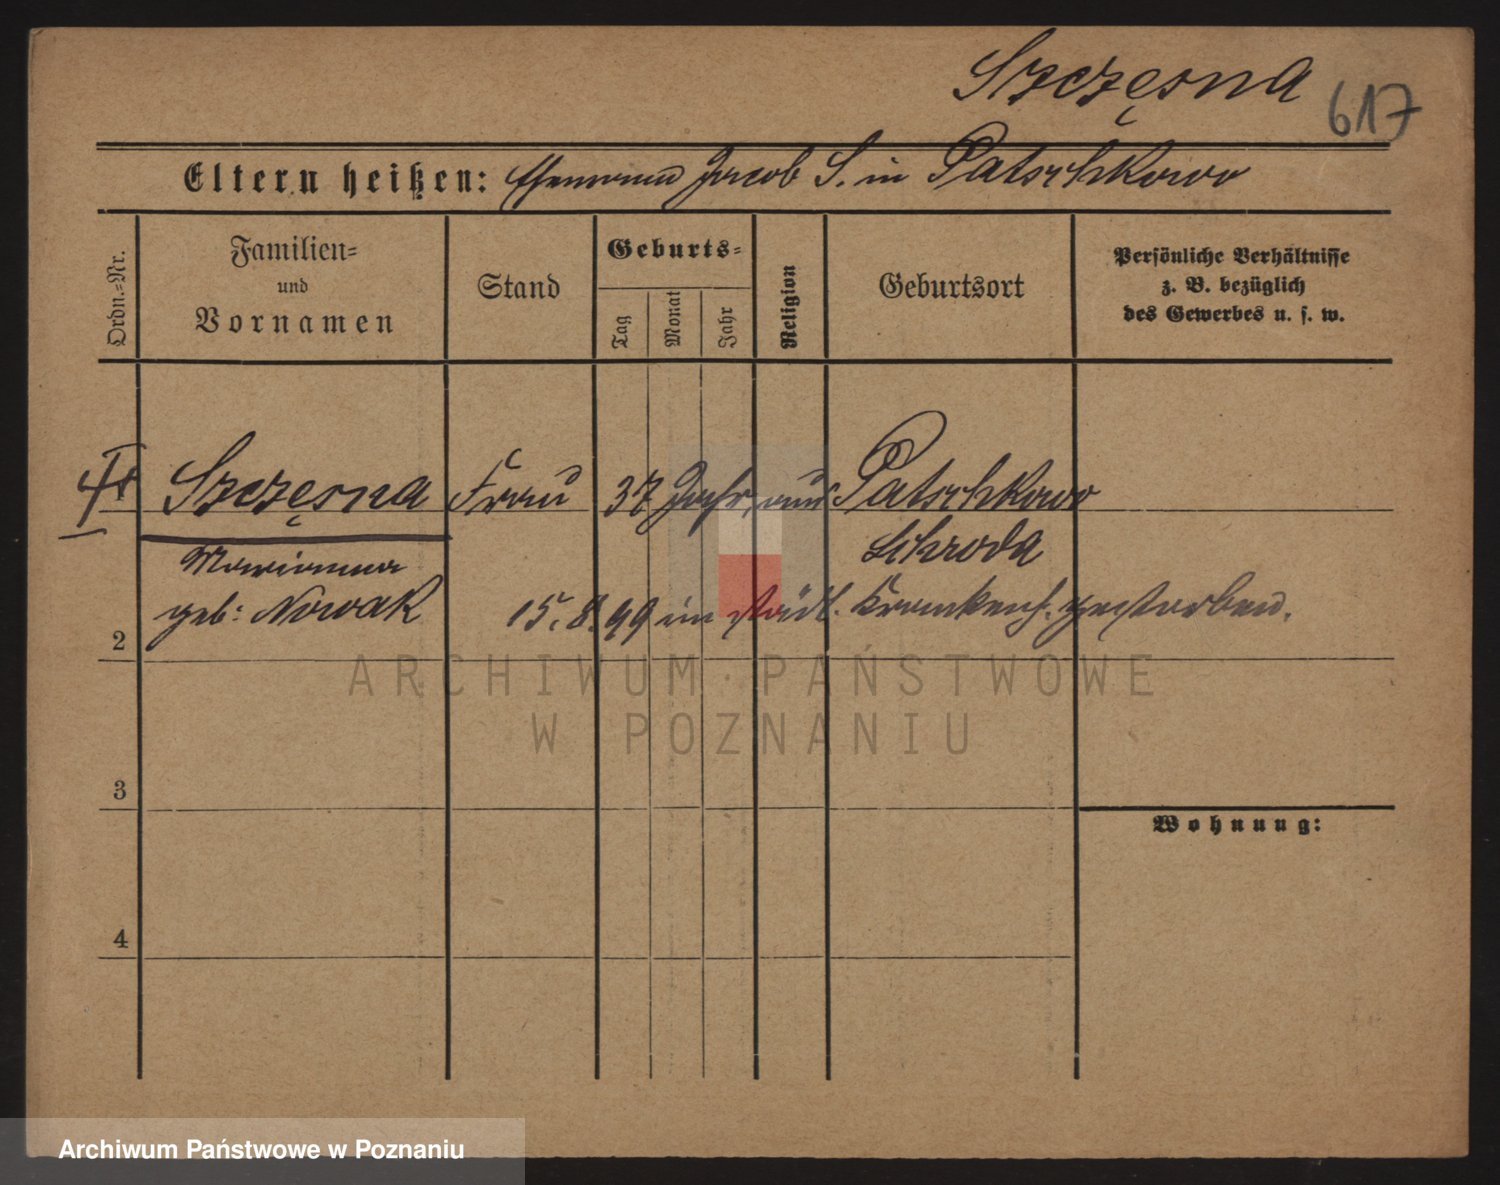 Szczęsna
617
Eltern heißen: Ehemann Jacob S. in Patschkowo
Ordn.-Nr.
Familien-
und
Vornamen
Stand
Geburts-
Tag
Monat
Jahr
Religion
Geburtsort
Persönliche Verhältnisse
z. B. bezüglich
des Gewerbes u. s. w.
Szczęsna Frau 37 Jahr, aus Patschkowo
Schroda
Marianna
geb: Nowak 15. 8. 99 im städt. Krankenh. gestorben.
2
3
4
Wohnung:
ARCHIWUM PAŃSTWOWE
W POZNANIU
Archiwum Państwowe w Poznaniu